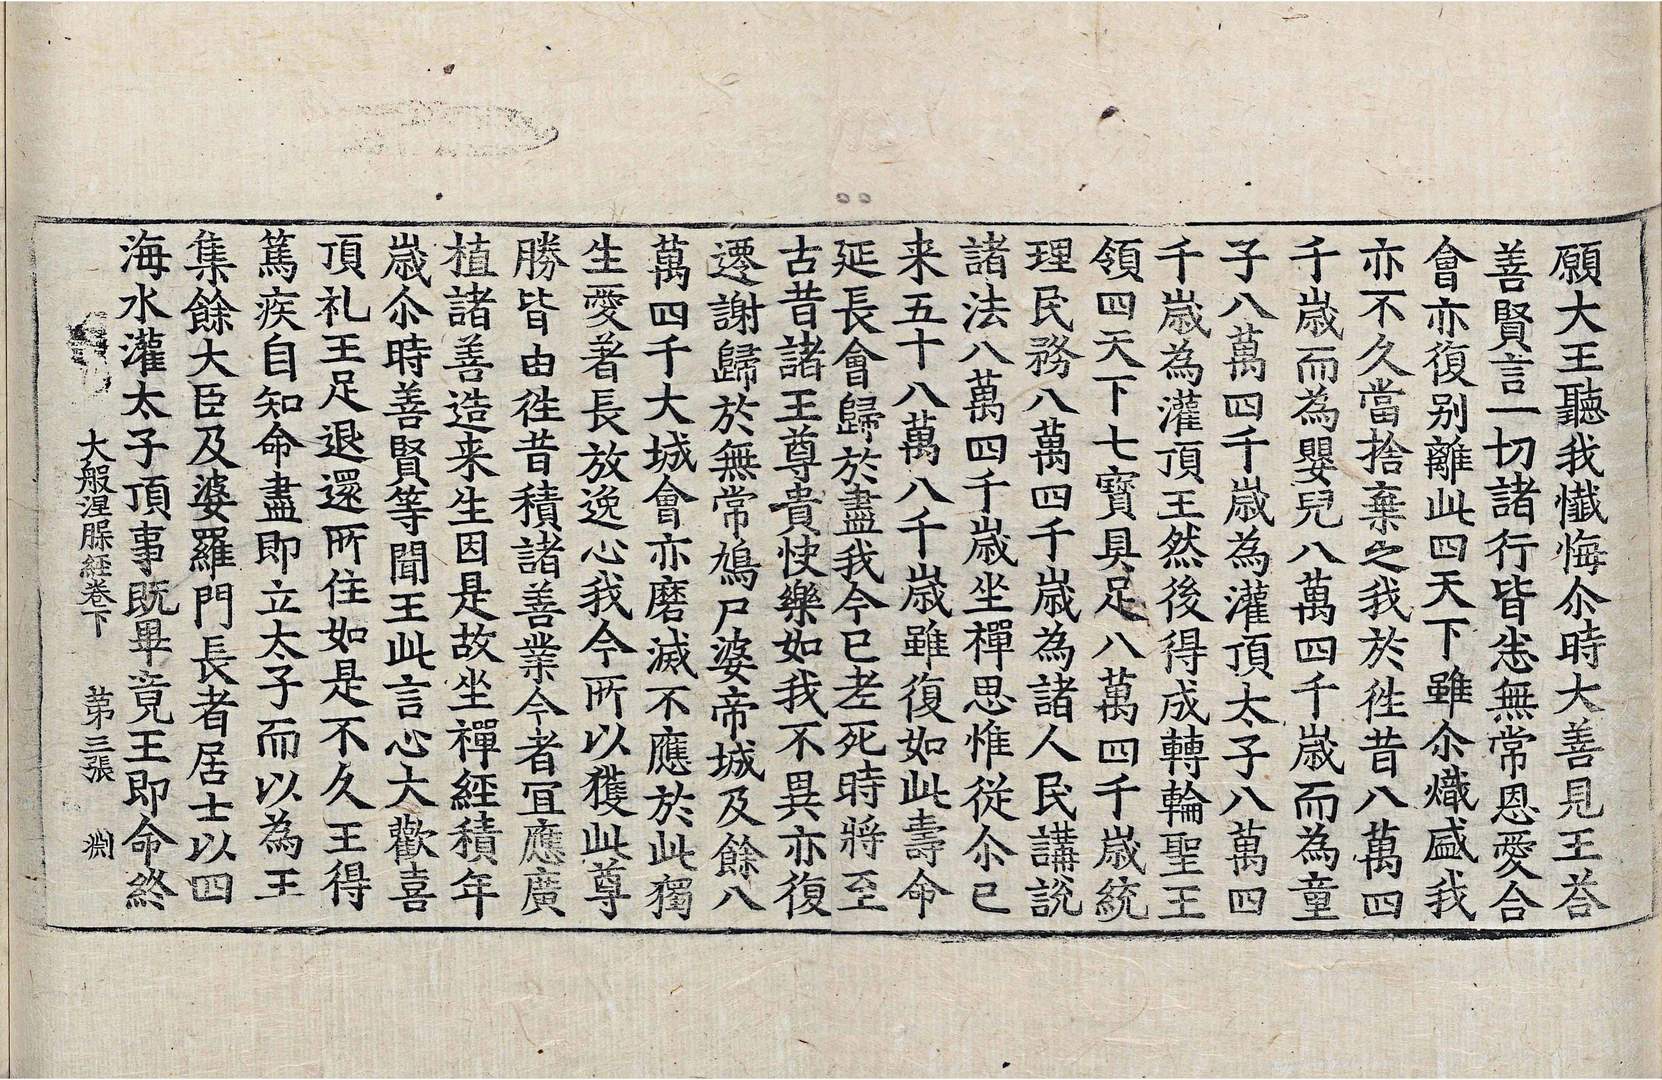 願大王聽我懺悔尒時大善見王荅
善賢言一切諸行皆悉無常恩愛合
會亦復别離此四天下雖尒熾盛我
亦不久當捨棄之我於徃昔八萬四
千歳而為嬰兒八萬四千歳而為童
子八萬四千歳為灌頂太子八萬四
千歳為灌頂王然後得成轉輪聖王
領四天下七寳具足八萬四千歳統
理民務八萬四千歳為諸人民講説
諸法八萬四千歳坐禪思惟從尒已
来五十八萬八千歳雖復如此壽命
延長會歸於盡我今已老死時將至
古昔諸王尊貴快樂如我不異亦復
遷謝歸於無常鳩尸婆帝城及餘八
萬四千大城會亦磨滅不應於此獨
生愛著長放逸心我今所以獲此尊
勝皆由徃昔積諸善業今者冝應廣
植諸善造来生因是故坐禪經積年
歳尒時善賢等聞王此言心大歡喜
頂礼王足退還所住如是不久王得
篤疾自知命盡即立太子而以為王
集餘大臣及婆羅門長者居士以四
海水灌太子頂事既畢竟王即命終
大般涅槃經卷下 苐三張 淵